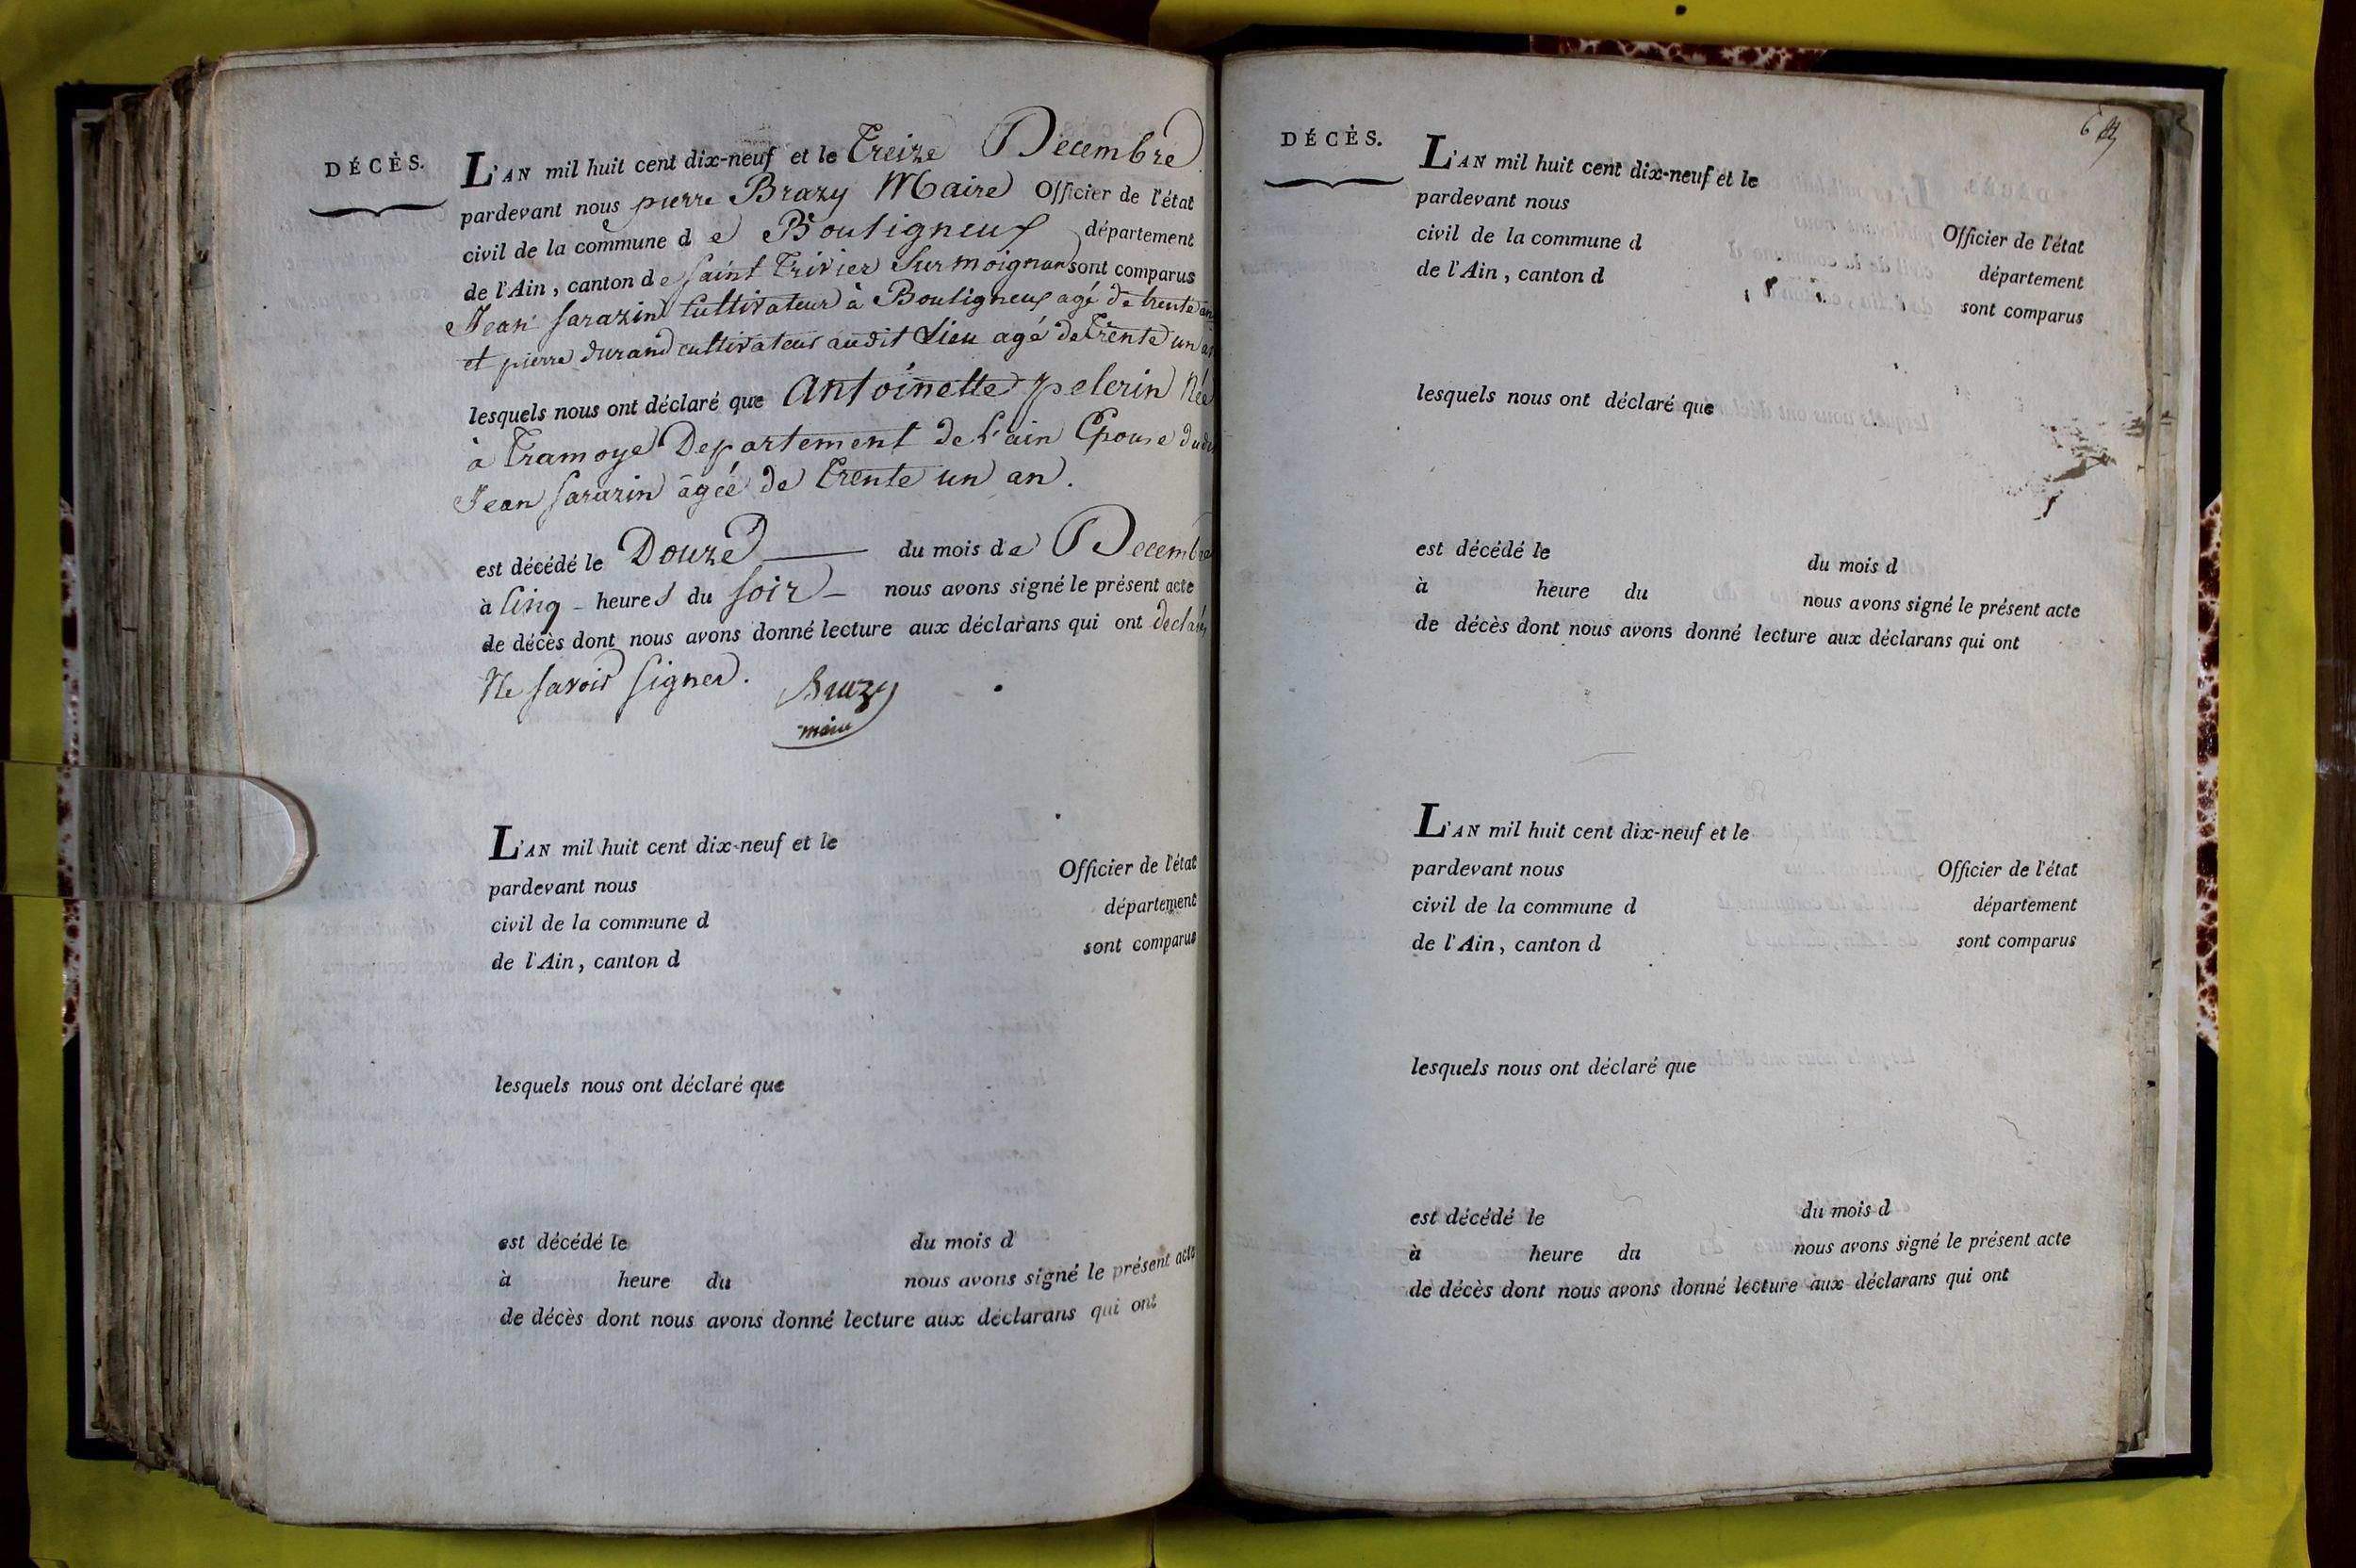 DÉCÈS.
L'AN mil huit cent dix-neuf et le Treize Décembre
pardevant nous pierre Brazy Maire Officier de l'état
civil de la commune de Bouligneux département
de l'Ain, canton de saint Trivier Surmoignan sont comparus
Jean sarazin Cultivateur à Bouligneux agé de trente an
et pierre durand cultivateur audit Lieu agé de Trente un an
lesquels nous ont déclaré que Antoinette pelerin Née
à Tramoye Departement de L'ain Epouse dudi
Jean sarazin âgée de Trente un an.
est décédé le Douze du mois de Decembre
à Cinq heures du soir nous avons signé le présent acte
de décès dont nous avons donné lecture aux déclarans qui ont déclaré
Ne savoir signer.
Brazy
maire
L'AN mil huit cent dix-neuf et le
pardevant nous Officier de l'état
civil de la commune d département
de l'Ain, canton d sont comparus
lesquels nous ont déclaré que
est décédé le du mois d
à heure du nous avons signé le présent acte
de décès dont nous avons donné lecture aux déclarans qui ont
DÉCÈS.
L'AN mil huit cent dix-neuf et le
pardevant nous Officier de l'état
civil de la commune d département
de l'Ain, canton d sont comparus
lesquels nous ont déclaré que
est décédé le du mois d
à heure du nous avons signé le présent acte
de décès dont nous avons donné lecture aux déclarans qui ont
L'AN mil huit cent dix-neuf et le
pardevant nous Officier de l'état
civil de la commune d département
de l'Ain, canton d sont comparus
lesquels nous ont déclaré que
est décédé le du mois d
à heure du nous avons signé le présent acte
de décès dont nous avons donné lecture aux déclarans qui ont